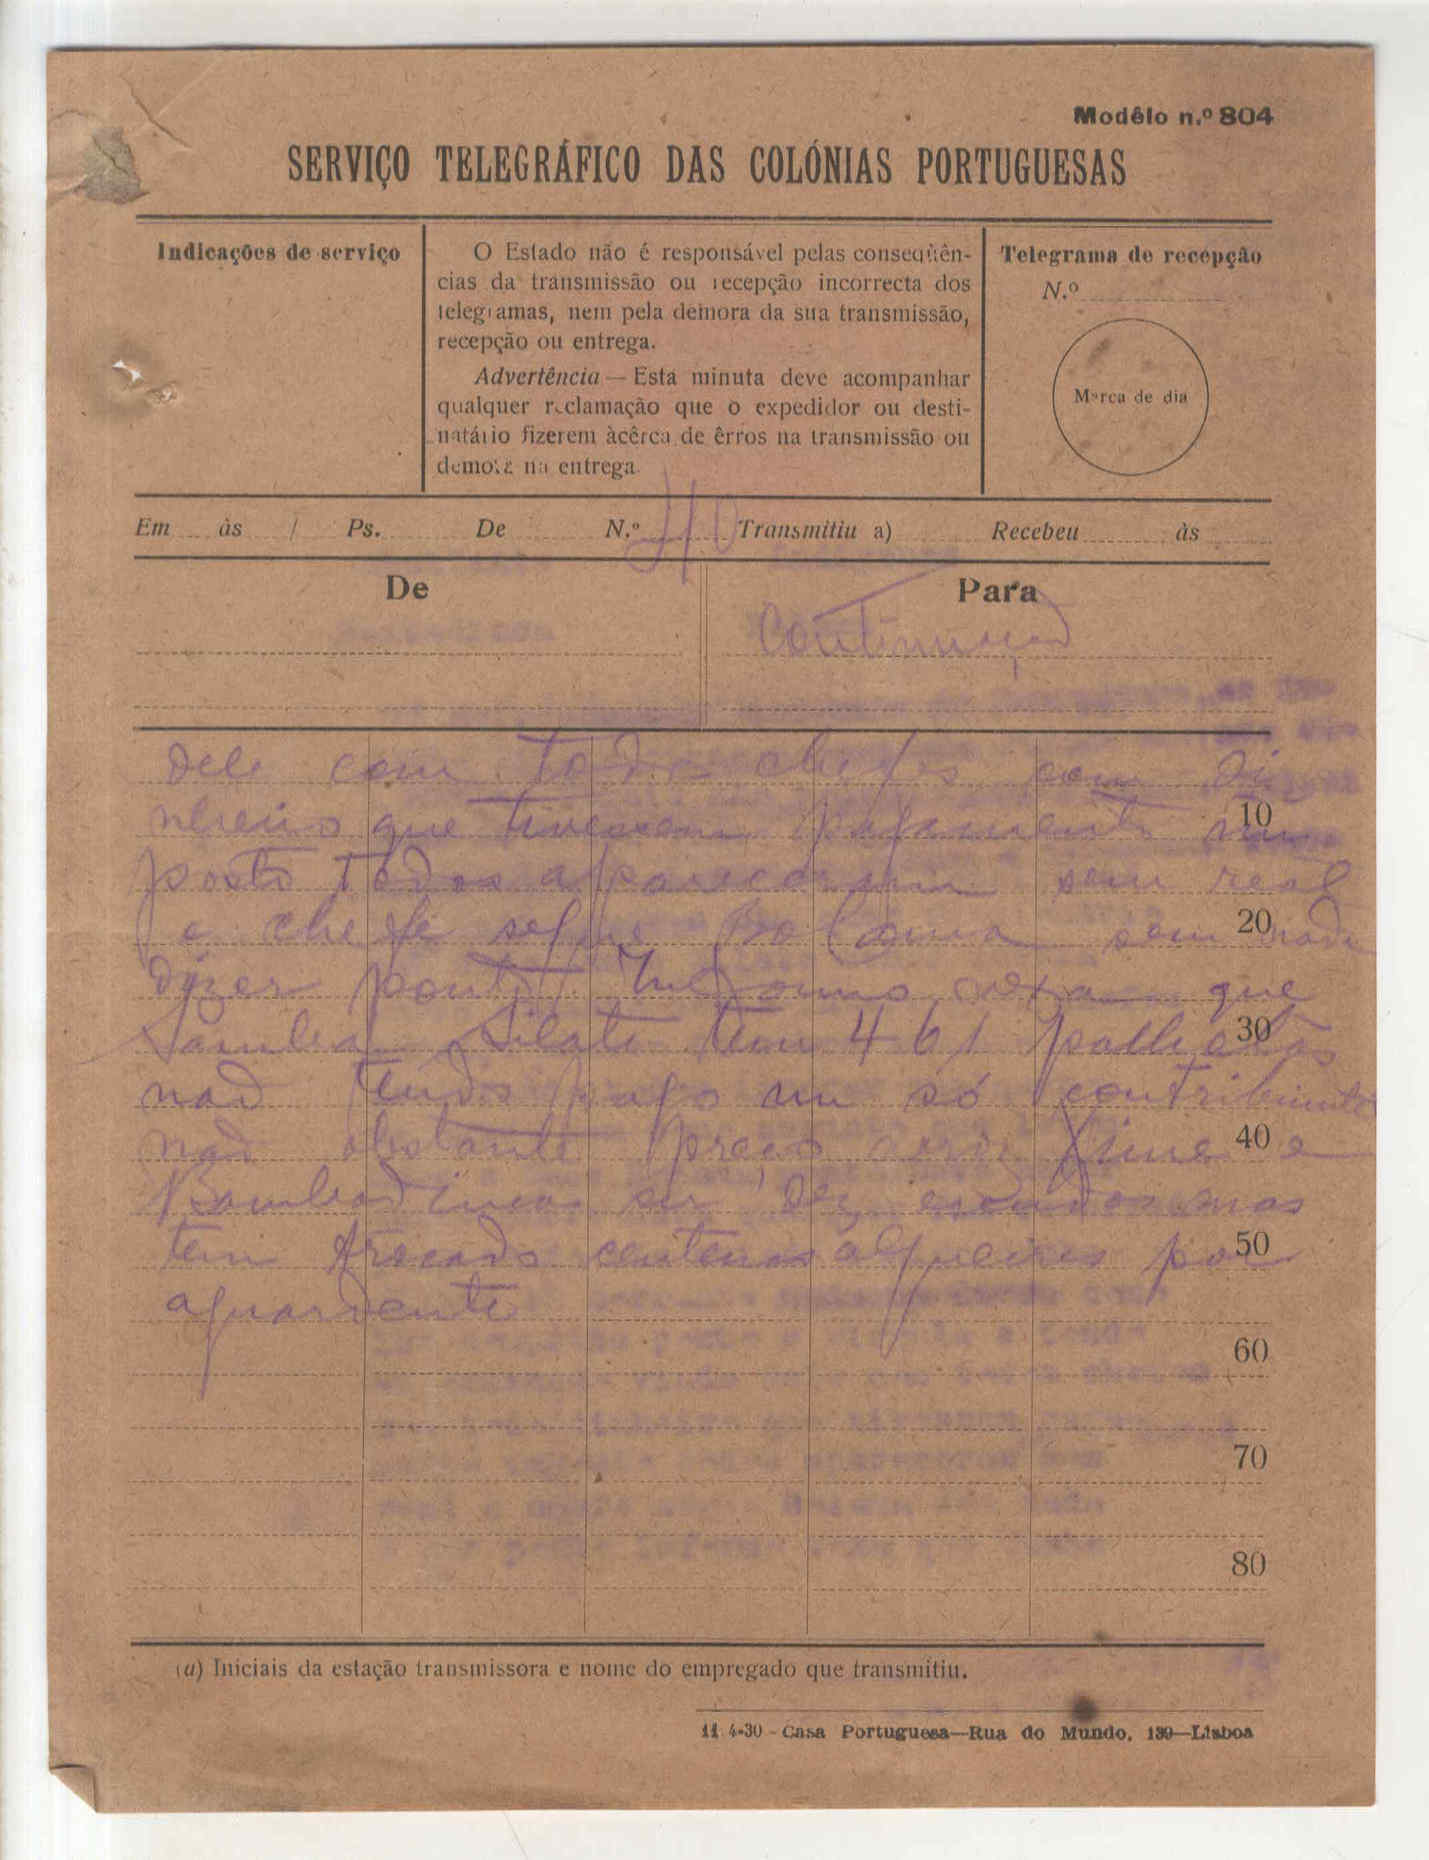 Modêlo n.º 804
SERVIÇO TELEGRÁFICO DAS COLÓNIAS PORTUGUESAS
Indicações de serviço
O Estado não é responsável pelas conseqüên-
cias da transmissão ou recepção incorrecta dos
telegramas, nem pela demora da sua transmissão,
recepção ou entrega.
Advertência — Esta minuta deve acompanhar
qualquer reclamação que o expedidor ou desti-
natário fizerem àcêrca de êrros na transmissão ou
demora na entrega.
Telegrama de recepção
N.º
Marca de dia
Em às / Ps. De N.º 40 Transmitiu a) Recebeu às
De
Para
Continuação
dele com todo chefes com di
nheiro que tivessem pagamento num 10
posto todos apareceram sem real
e chefe segue Bolama sem nada 20
dizer ponto Informo vexa que
Samba Silate tem 461 palhotas 30
não tendo pago um só contribuinte
não obstante preço arroz Xime e 40
Bambadinca ser dez escudos mas
tem trocado centenas alqueires por 50
aguardente
60
70
80
(a) Iniciais da estação transmissora e nome do empregado que transmitiu.
11-4-30 - Casa Portuguesa—Rua do Mundo, 139—Lisboa